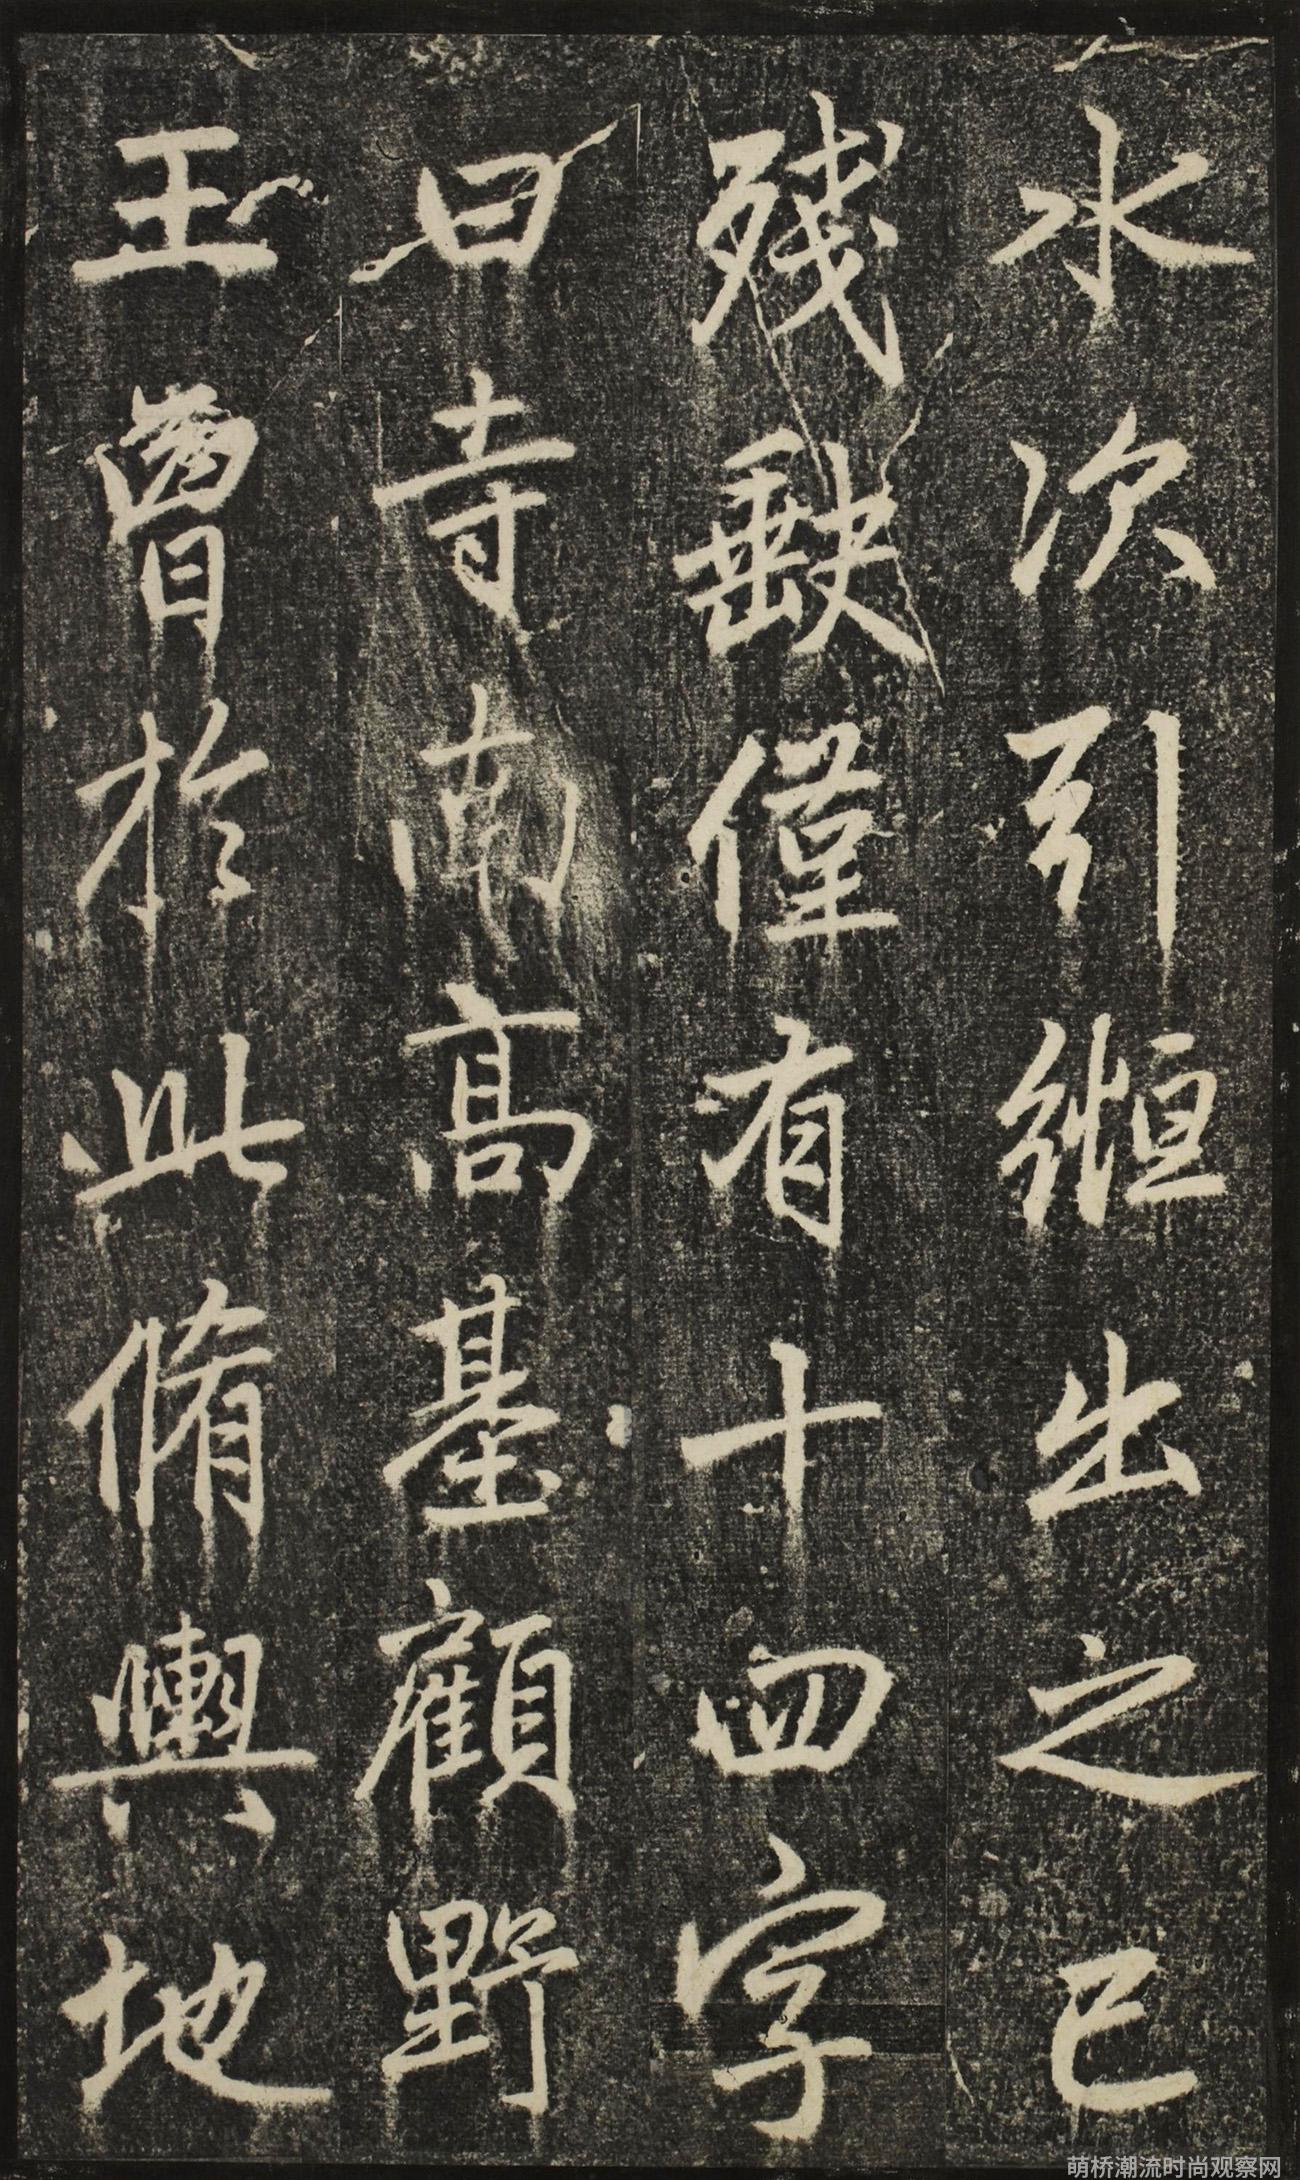 水次引緪出之已
殘缺僅有十四字
曰寺南高基顧野
王曾於此脩輿地
萌桥潮流时尚观察网